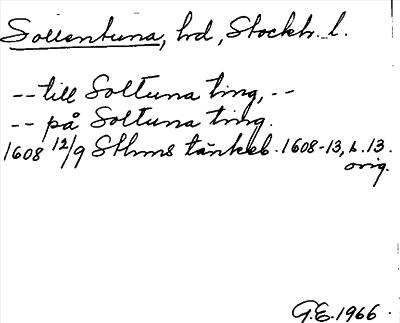 Sollentuna, hd, Stockh. l.
-- till Soltuna ting, --
-- på Soltuna ting.
1608 12/9 Sthms tänkeb. 1608-13, s. 13.
orig.
G.E. 1966.